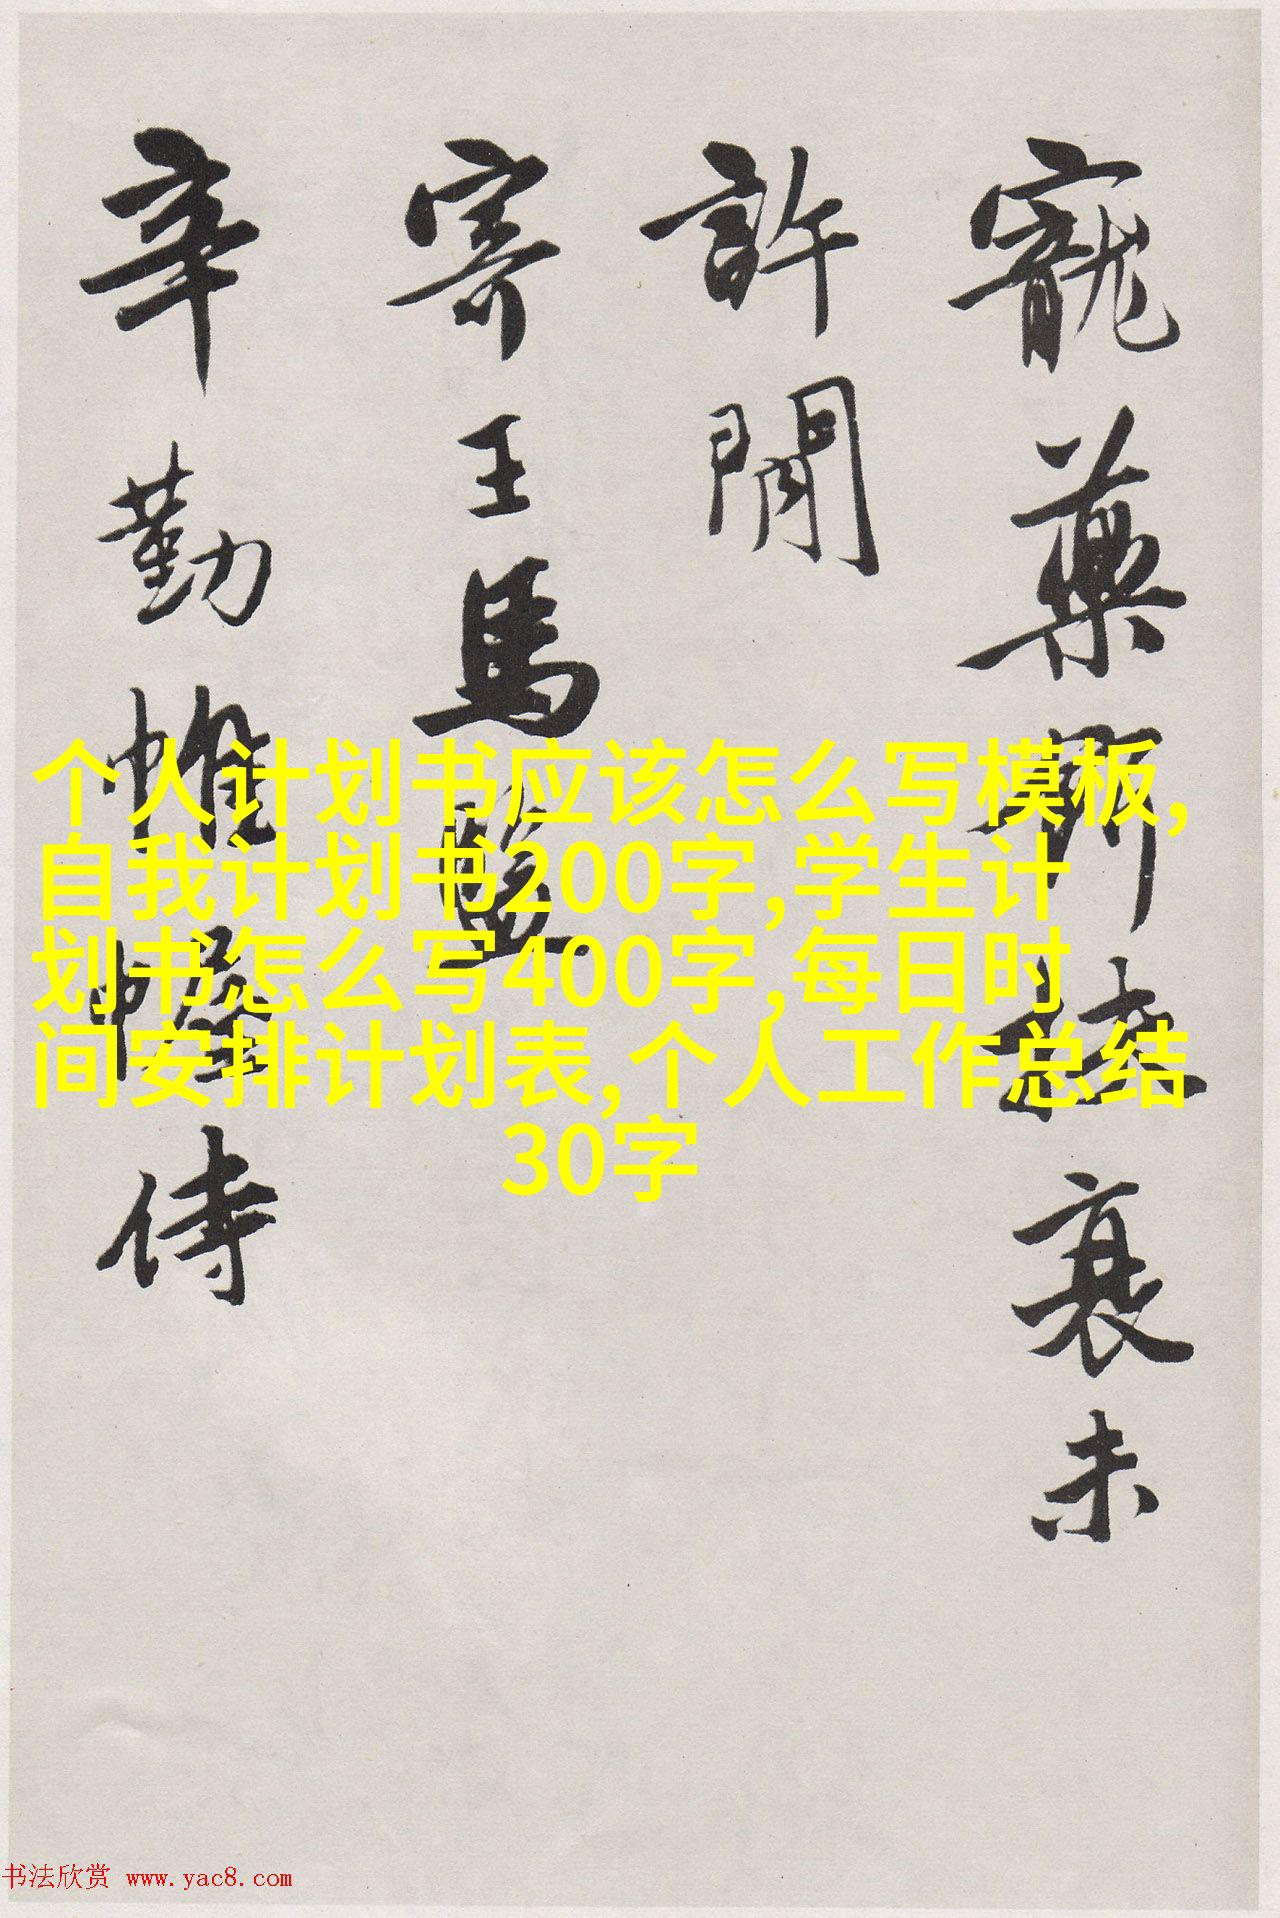 寵藥所扶衰未
許閒
寄王馬監
辛勤帷幄侍
个人计划书应该怎么写模板,
自我计划书200字,学生计
划书怎么写400字,每日时
间安排计划表,个人工作总结
30字
书法欣赏 www.yac8.com